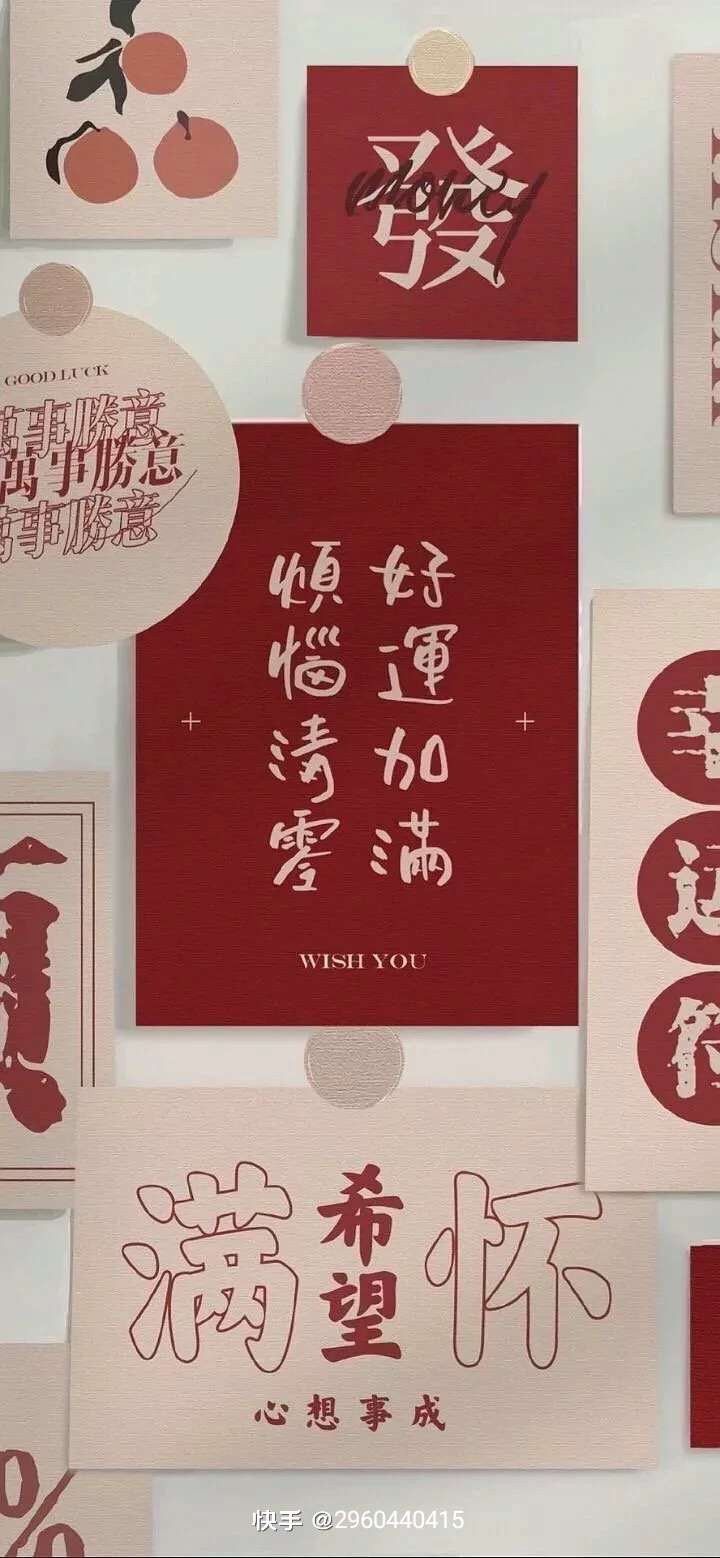 發
money
GOOD LUCK
萬事勝意
萬事勝意
萬事勝意
好運加滿
煩惱清零
WISH YOU
满怀
希望
心想事成
%
快手 @2960440415